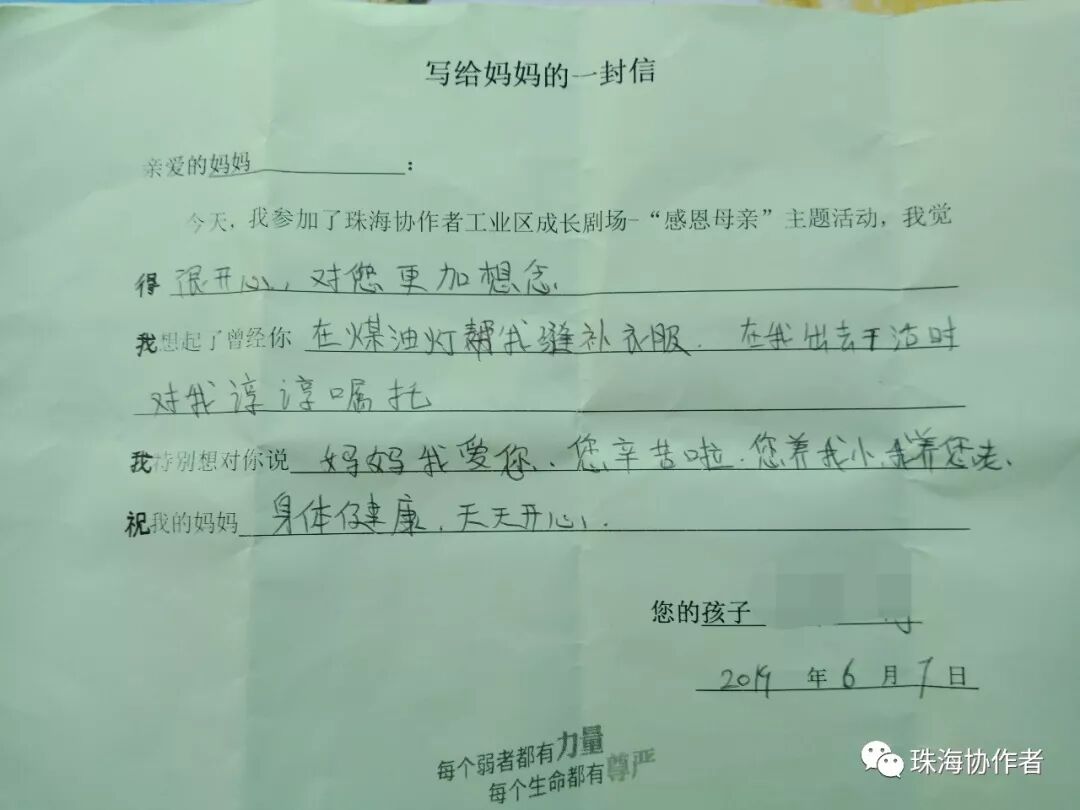 写给妈妈的一封信
亲爱的妈妈：
今天，我参加了珠海协作者工业区成长剧场-“感恩母亲”主题活动，我觉
得 很开心，对您更加想念
我想起了曾经你 在煤油灯帮我缝补衣服．在我出去干活时
对我谆谆嘱托
我特别想对你说 妈妈我爱您、您辛苦啦．您养我小，我养您老、
祝我的妈妈 身体健康，天天开心．
您的孩子
2019年6月7日
每个弱者都有力量
每个生命都有尊严
珠海协作者